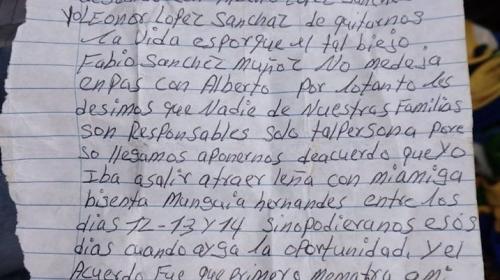 yo Leonor Lopez Sanchaz de quitarnos
la vida esporque el tal biejo
Fabio Sanchez Muñoz No medeja
enpas con Alberto por lotanto les
desimos que Nadie de Nuestras Familias
son Responsables solo talPersona pore
so llegamos aponernos deacuerdo que yo
Iba asalir atraer leña con miamiga
bisenta Munguia hernandes entre los
dias 12-13 y 14 sinopodieranos esos
dias cuando ayga la oportunidad. y el
Acuerdo Fue que primero mematra a mi